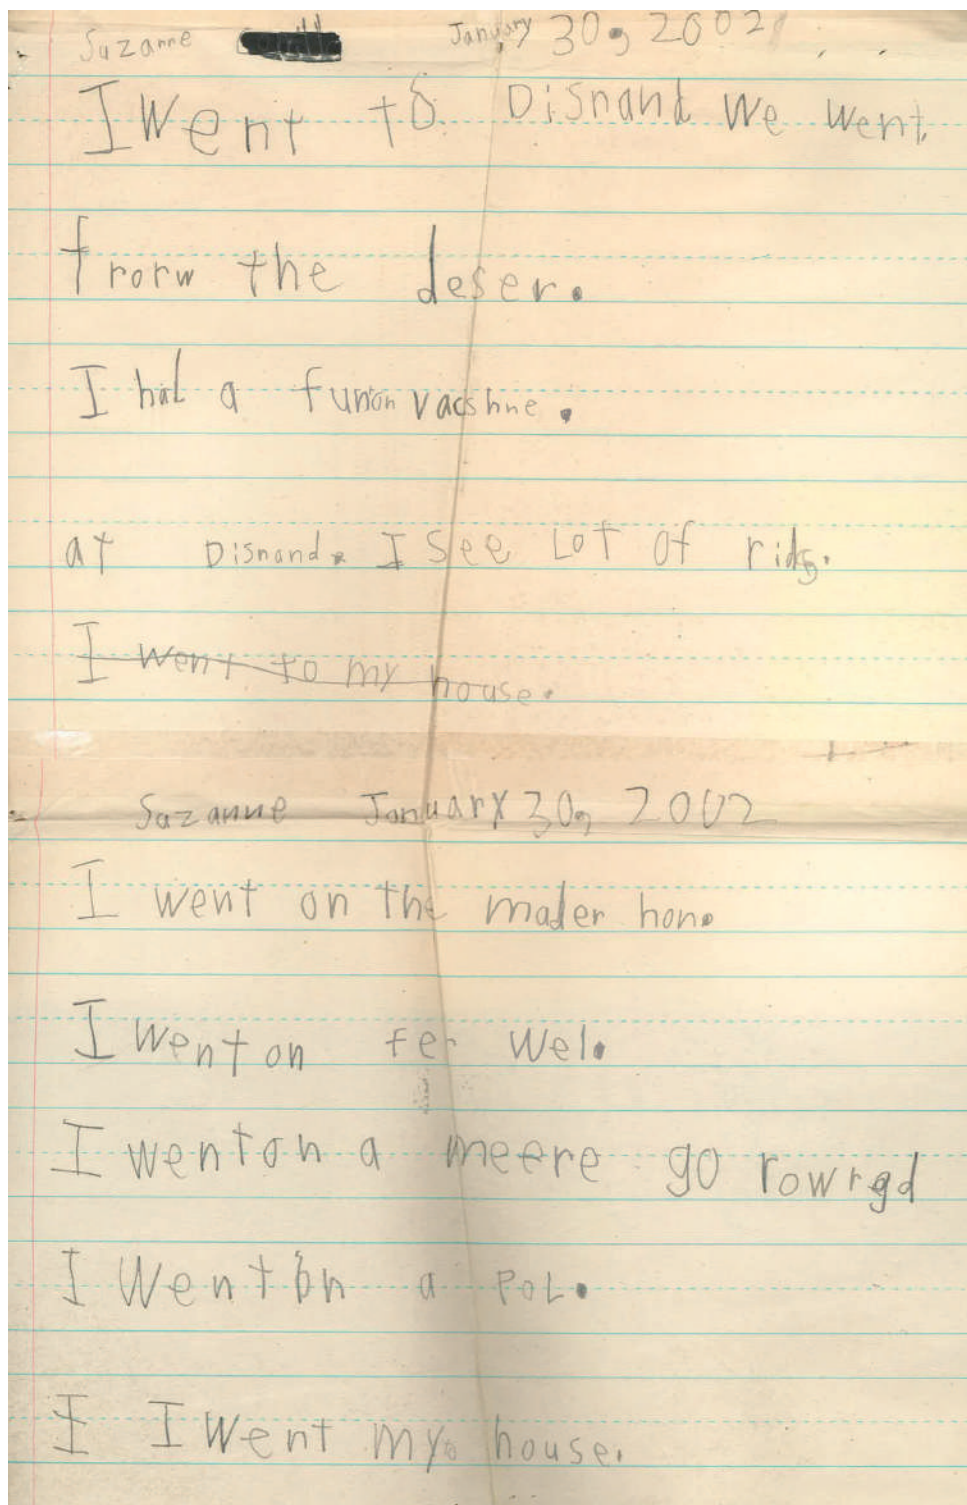 Suzanne January 30, 2002
I Went to Disnand We went
frorw the deser.
I had a funon vacshne.
at Disnand. I See Lot of rids.
I went to my house.
Suzanne January 30, 2002
I went on the mader hon.
I went on fer wel.
I went on a meere go rowrgd
I Went on a POL.
I I Went my house.